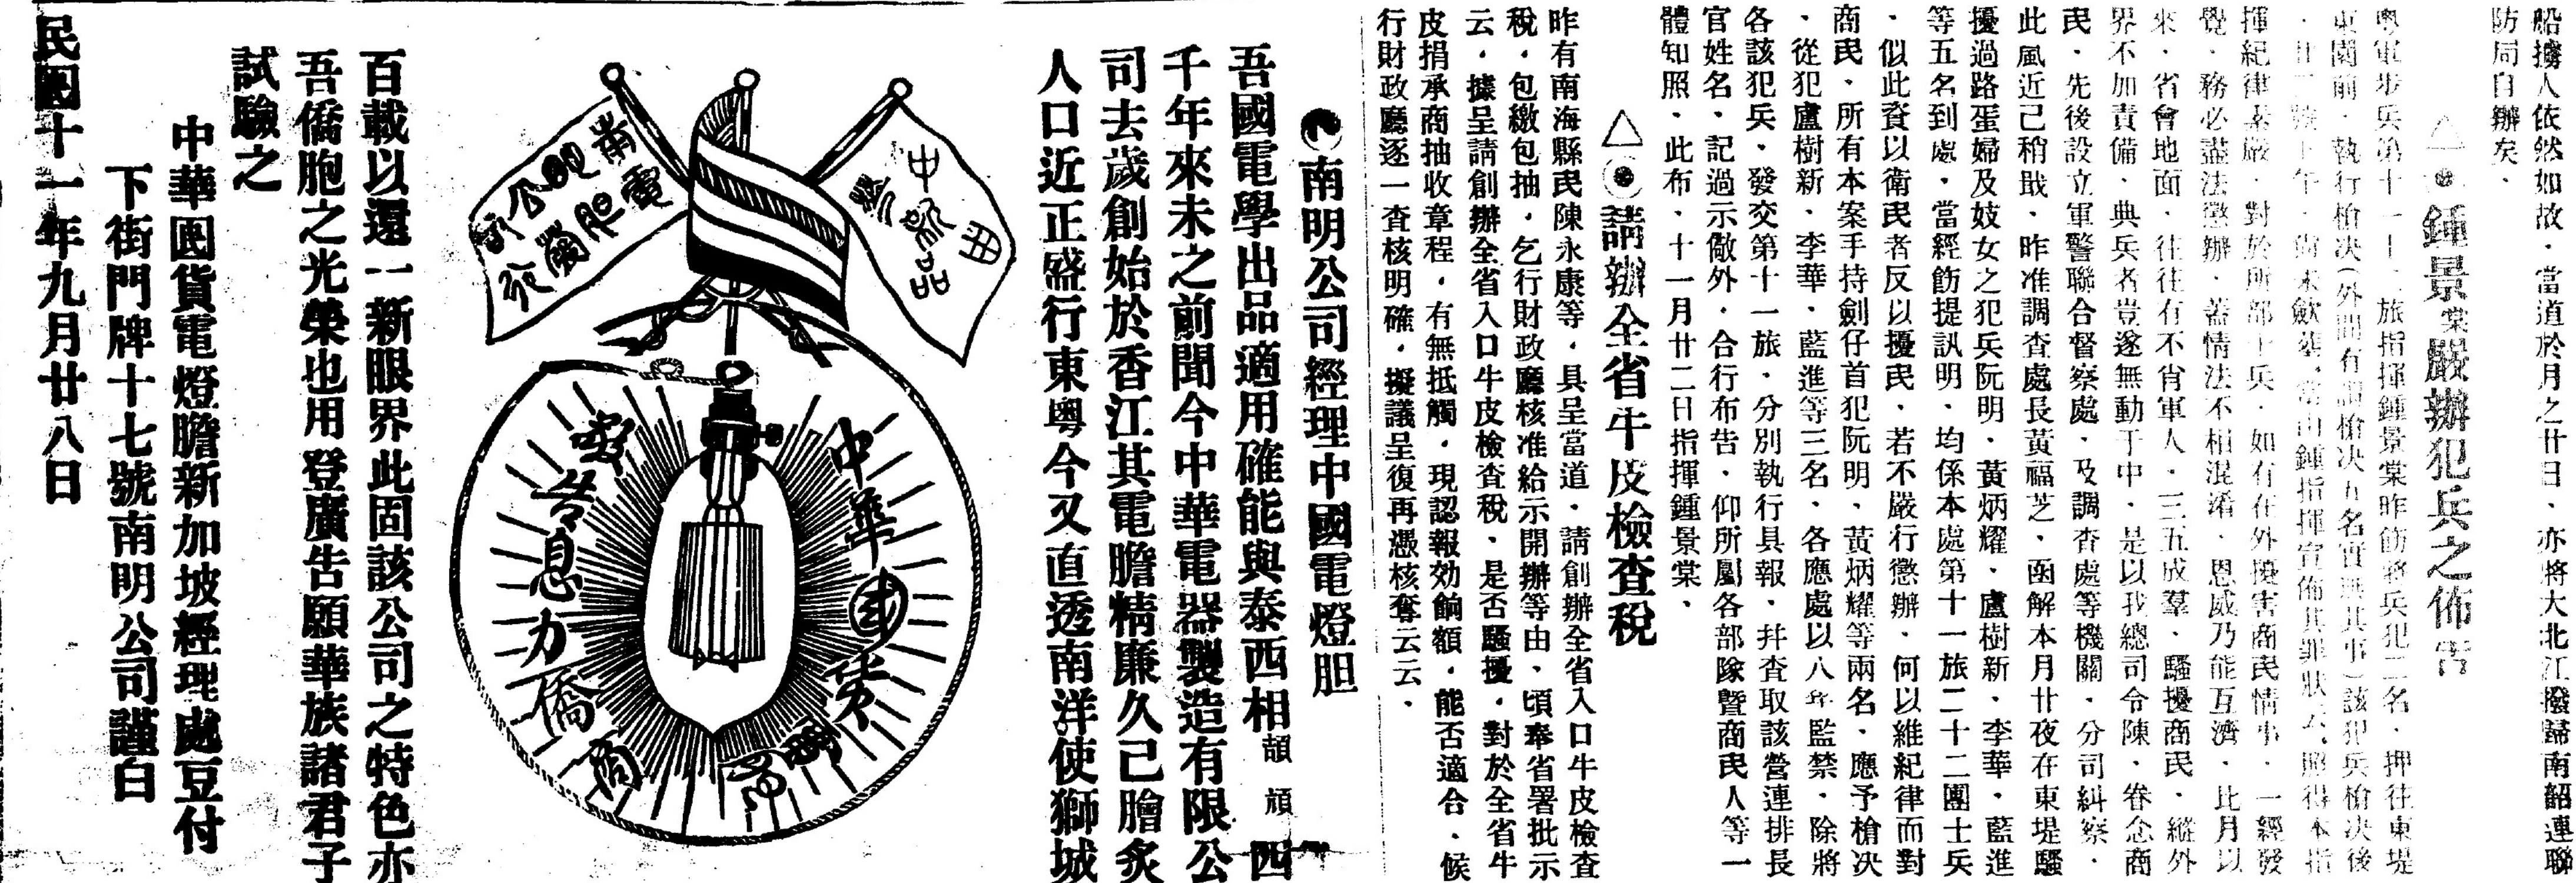 船擄人依然如故．當道於月之廿日、亦將大北江撥歸南韶連聯
防局自辦矣、
△◉鍾景棠嚴辦犯兵之佈告
粵軍步兵第十一旅指揮鍾景棠昨飭將兵犯二名．押往東堤
東園前．執行槍决（外間有謂槍决五名實無其事）該犯兵槍决後
揮紀律素嚴．對於所部士兵．如有在外擾害商民情事．一經發
覺．務必盡法懲辦．蓋情法不相混淆．恩威乃能互濟．此月以
來．省會地面．往往有不肖軍人．三五成羣．騷擾商民．縱外
界不加責備．典兵者豈遂無動于中．是以我總司令陳．眷念商
民．先後設立軍警聯合督察處．及調查處等機關．分司糾察．
此風近己稍戢．昨准調查處長黃福芝．函解本月廿夜在東堤騷
擾過路蛋婦及妓女之犯兵阮明．黃炳耀．盧樹新．李華．藍進
等五名到處．當經飭提訊明．均係本處第十一旅二十二團士兵
．似此資以衛民者反以擾民．若不嚴行懲辦．何以維紀律而對
商民．所有本案手持劍仔首犯阮明．黃炳耀等兩名．應予槍决
．從犯盧樹新．李華．藍進等三名．各應處以八年監禁．除將
各該犯兵．發交第十一旅．分別執行具報．幷查取該營連排長
官姓名．記過示儆外．合行布告．仰所屬各部隊曁商民人等一
體知照．此布．十一月廿二日指揮鍾景棠、
△◉請辦全省牛皮檢查稅
昨有南海縣民陳永康等．具呈當道．請創辦全省入口牛皮檢查
稅．包繳包抽．乞行財政廳核准給示開辦等由、頃奉省署批示
云．據呈請創辦全省入口牛皮檢查稅．是否騷擾．對於全省牛
皮捐承商抽收章程．有無抵觸．現認報効餉額．能否適合．候
行財政廳逐一查核明確．擬議呈復再憑核奪云云．
南明公司經理中國電燈胆
吾國電學出品適用確能與泰西相頡頏四
千年來未之前聞今中華電器製造有限公
司去歲創始於香江其電膽精廉久己膾炙
人口近正盛行東粵今又直透南洋使獅城
中華國貨
電器
僑商
百載以還一新眼界此固該公司之特色亦
吾僑胞之光榮也用登廣告願華族諸君子
試驗之
中華國貨電燈膽新加坡經理處豆付
下街門牌十七號南明公司謹白
民國十一年九月廿八日